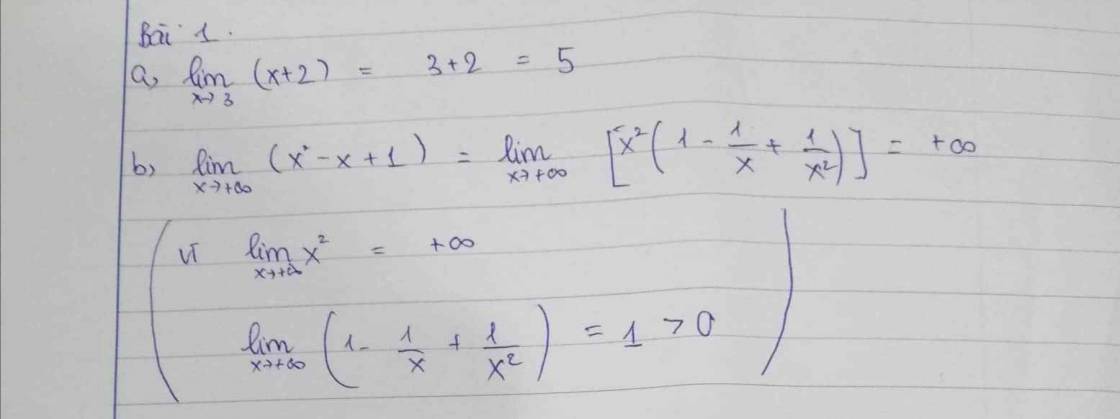 Bài 1.
a, lim x→3 (x+2) = 3+2 = 5
b, lim x→+∞ (x² - x + 1) = lim x→+∞ [x²(1 - 1/x + 1/x²)] = +∞
(vì lim x→+∞ x² = +∞
lim x→+∞ (1 - 1/x + 1/x²) = 1 > 0)